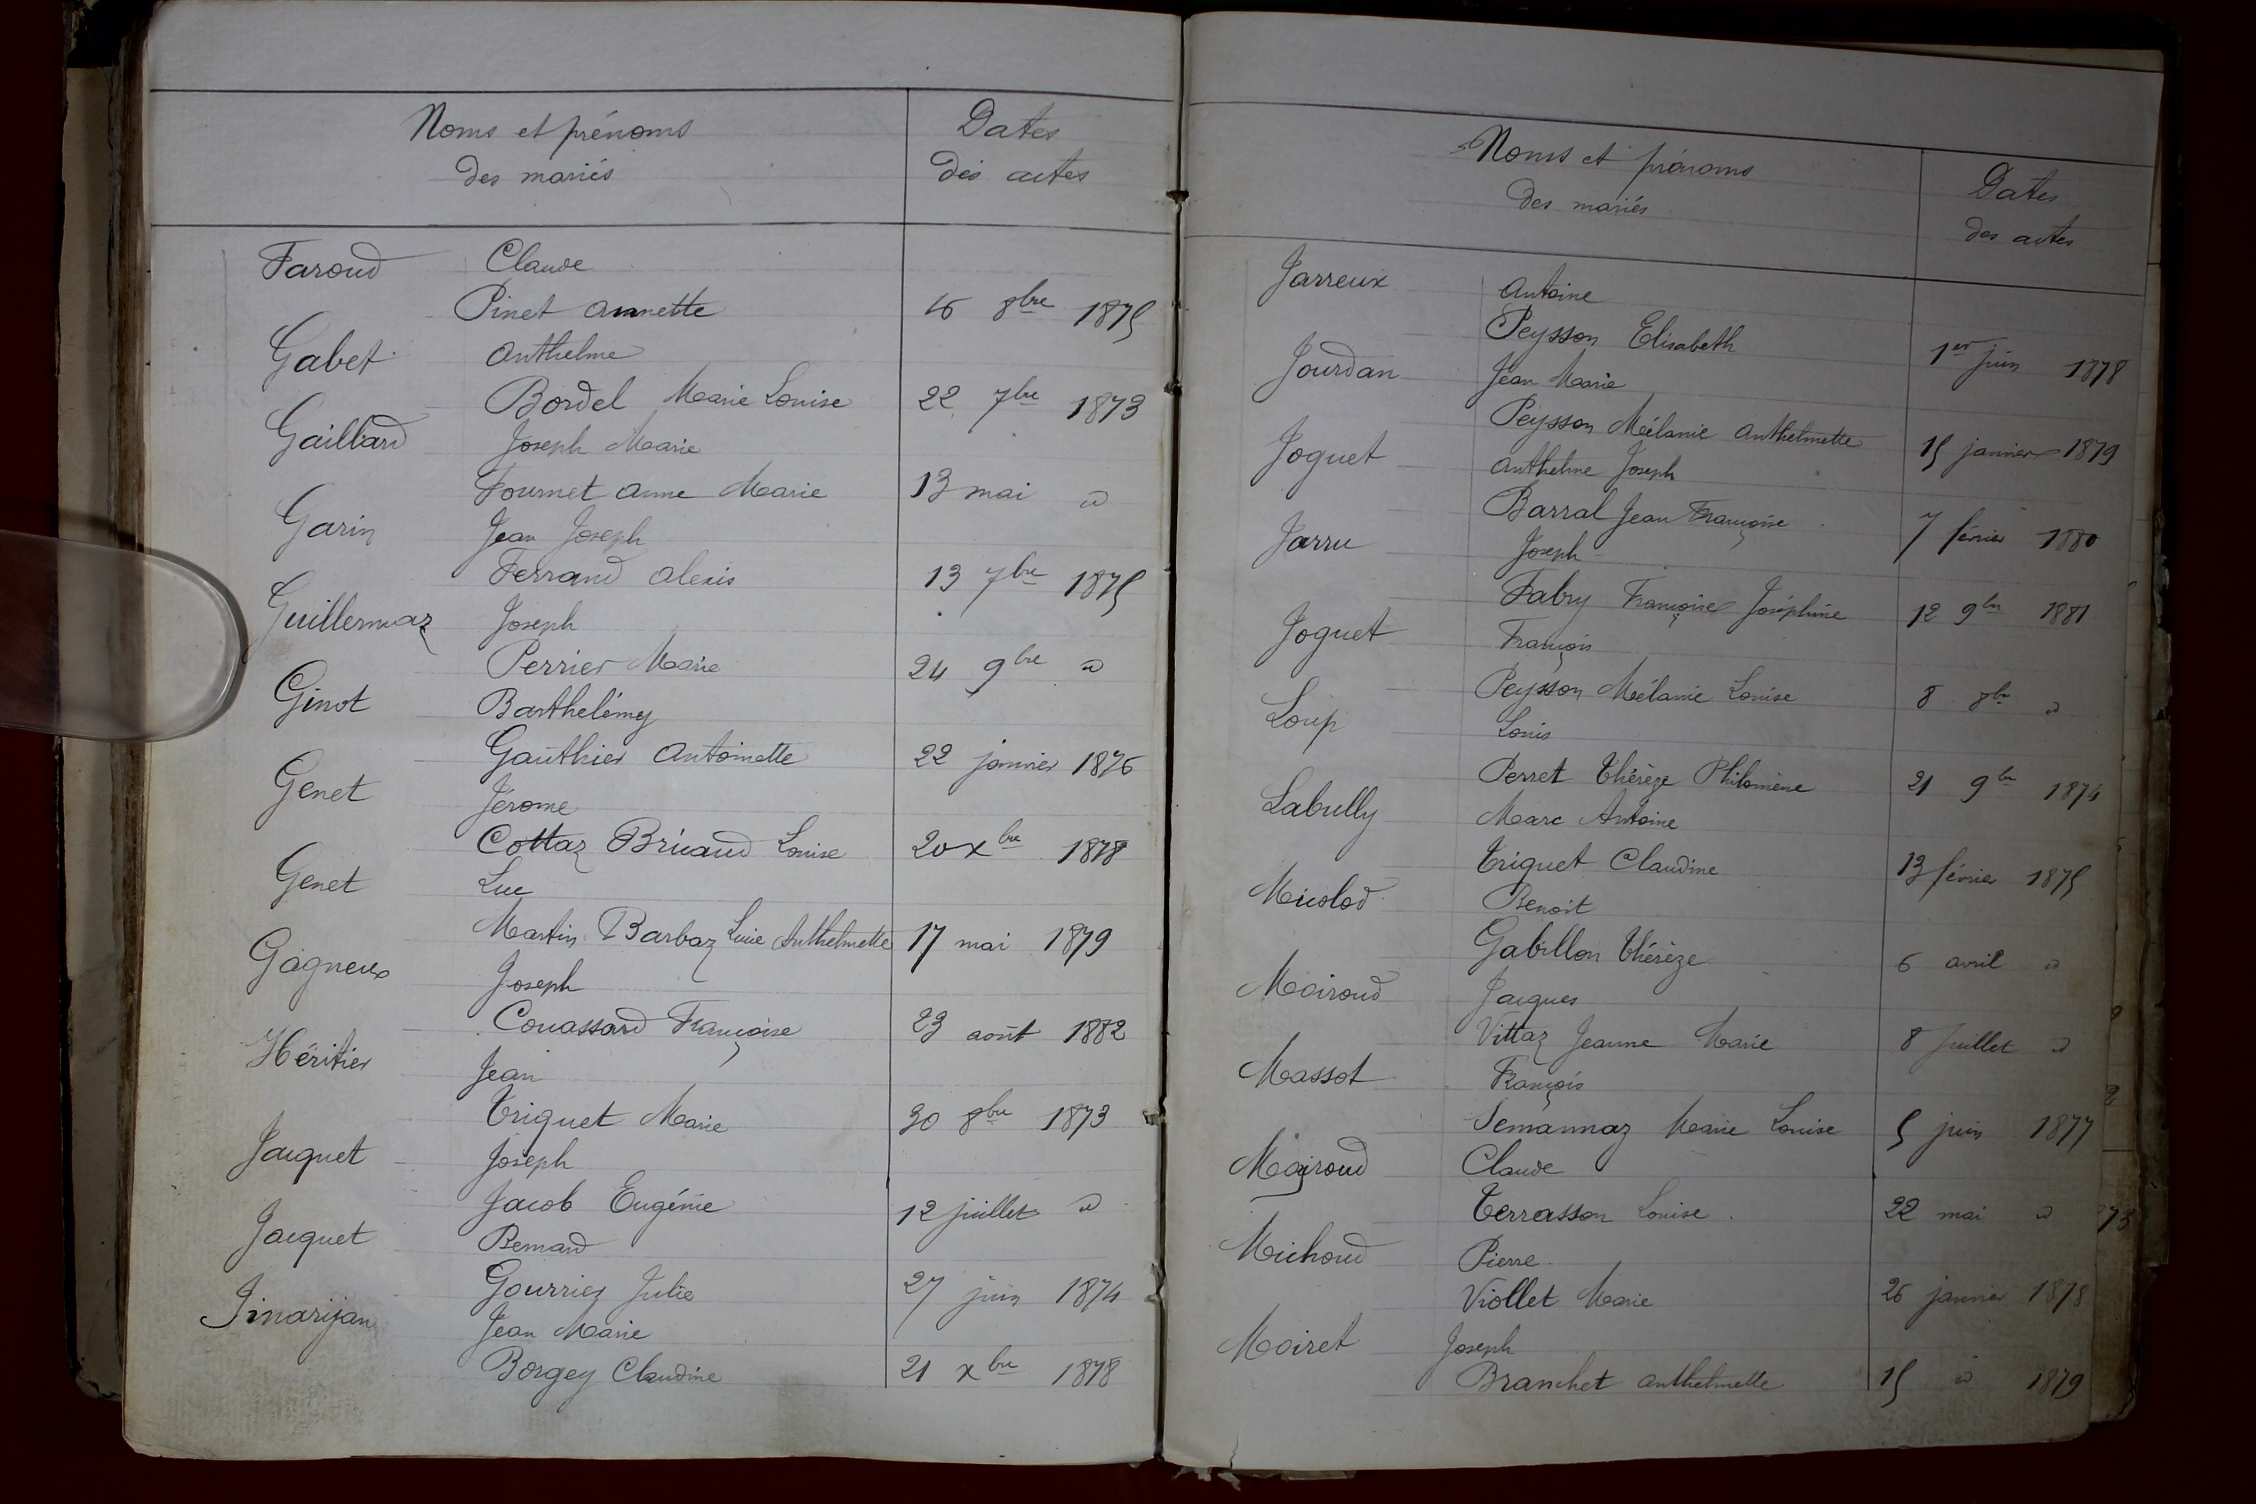 Noms et prénoms
des mariés
Dates
des actes
Faroud Claude
Pinet Annette 16 8bre 1875
Gabet Anthelme
Bordel Marie Louise 22 7bre 1873
Gaillard Joseph Marie
Fournet Anne Marie 13 mai d
Garin Jean Joseph
Ferrand Alexis 13 7bre 1875
Guillermaz Joseph
Perrier Marie 24 9bre d
Ginot Barthelémy
Gauthier Antoinette 22 janvier 1876
Genet Jérome
Cottaz Briaud Louise 20 xbre 1878
Genet Luc
Martin Barbaz Lucie Anthelmette 17 mai 1879
Gagneux Joseph
Couassard Françoise 23 août 1882
Héritier Jean
Triquet Marie 30 8bre 1873
Jacquet Joseph
Jacob Eugénie 12 juillet d
Jacquet Bernard
Gourriez Julie 27 juin 1874
Jinarijan Jean Marie
Borgey Claudine 21 xbre 1878
Noms et prénoms
des mariés
Dates
des actes
Jarreux Antoine
Peysson Elisabeth 1er juin 1878
Jourdan Jean Marie
Peysson Mélanie Anthelmette 15 janvier 1879
Joguet Anthelme Joseph
Barral Jean Françoise 7 février 1880
Jarru Joseph
Fabry Françoise Joséphine 12 9bre 1881
Joguet François
Peysson Mélanie Louise 8 8bre d
Loup Louis
Perret Thérèze Philomène 21 9bre 1874
Labully Marc Antoine
Triquet Claudine 13 février 1875
Micolod Benoit
Gabillon Thérèze 6 avril d
Moiroud Jacques
Vittaz Jeanne Marie 8 juillet d
Massot François
Semannaz Marie Louise 5 juin 1877
Moiroud Claude
Terrasson Louise 22 mai d
Michoud Pierre
Viollet Marie 26 janvier 1878
Moiret Joseph
Branchet Anthelmette 15 d 1879